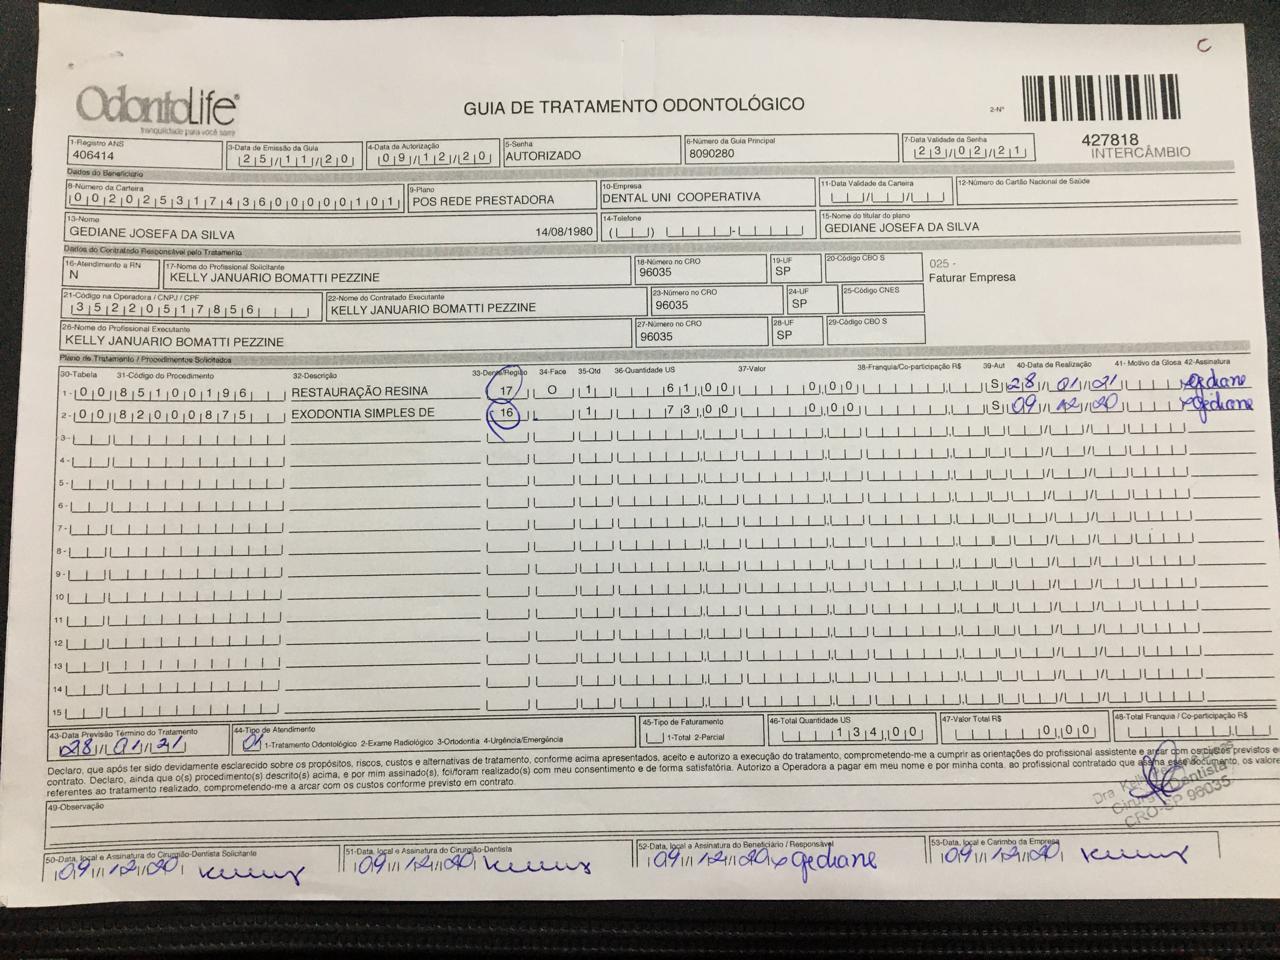 C
OdontoLife®
tranquilidade para você sorrir
GUIA DE TRATAMENTO ODONTOLÓGICO
2-Nº
427818
INTERCÂMBIO
1-Registro ANS
406414
3-Data de Emissão da Guia
25/11/20
4-Data da Autorização
09/12/20
5-Senha
AUTORIZADO
6-Número da Guia Principal
8090280
7-Data Validade da Senha
23/02/21
Dados do Beneficiário
8-Número da Carteira
00202531743600000101
9-Plano
POS REDE PRESTADORA
10-Empresa
DENTAL UNI COOPERATIVA
11-Data Validade da Carteira
12-Número do Cartão Nacional de Saúde
13-Nome
GEDIANE JOSEFA DA SILVA 14/08/1980
14-Telefone
15-Nome do titular do plano
GEDIANE JOSEFA DA SILVA
Dados do Contratado Responsável pelo Tratamento
16-Atendimento a RN
N
17-Nome do Profissional Solicitante
KELLY JANUARIO BOMATTI PEZZINE
18-Número no CRO
96035
19-UF
SP
20-Código CBO S
025 -
Faturar Empresa
21-Código na Operadora / CNPJ / CPF
35220517856
22-Nome do Contratado Executante
KELLY JANUARIO BOMATTI PEZZINE
23-Número no CRO
96035
24-UF
SP
25-Código CNES
26-Nome do Profissional Executante
KELLY JANUARIO BOMATTI PEZZINE
27-Número no CRO
96035
28-UF
SP
29-Código CBO S
Plano de Tratamento / Procedimentos Solicitados
30-Tabela 31-Código do Procedimento 32-Descrição 33-Dente/Região 34-Face 35-Qtd 36-Quantidade US 37-Valor 38-Franquia/Co-participação R$ 39-Aut 40-Data de Realização 41- Motivo da Glosa 42-Assinatura
1- 00 85100196 RESTAURAÇÃO RESINA 17 O 1 61,00 0,00 S 28/01/21 gediane
2- 00 82000875 EXODONTIA SIMPLES DE 16 1 73,00 0,00 S 09/12/20 gediane
3-
4-
5-
6-
7-
8-
9-
10
11
12
13
14
15
43-Data Previsão Término do Tratamento
28/01/21
44-Tipo de Atendimento
01 1-Tratamento Odontológico 2-Exame Radiológico 3-Ortodontia 4-Urgência/Emergência
45-Tipo de Faturamento
1-Total 2-Parcial
46-Total Quantidade US
134,00
47-Valor Total R$
0,00
48-Total Franquia / Co-participação R$
Declaro, que após ter sido devidamente esclarecido sobre os propósitos, riscos, custos e alternativas de tratamento, conforme acima apresentados, aceito e autorizo a execução do tratamento, comprometendo-me a cumprir as orientações do profissional assistente e arcar com os custos previstos em
contrato. Declaro, ainda que o(s) procedimento(s) descrito(s) acima, e por mim assinado(s), foi/foram realizado(s) com meu consentimento e de forma satisfatória. Autorizo a Operadora a pagar em meu nome e por minha conta, ao profissional contratado que assina esse documento, os valores
referentes ao tratamento realizado, comprometendo-me a arcar com os custos conforme previsto em contrato.
Dra. Kelly
Cirurgiã Dentista
CRO-SP 96035
49-Observação
50-Data, local e Assinatura do Cirurgião-Dentista Solicitante
09/12/20
51-Data, local e Assinatura do Cirurgião-Dentista
09/12/20
52-Data, local e Assinatura do Beneficiário / Responsável
09/12/20 gediane
53-Data, local e Carimbo da Empresa
09/12/20